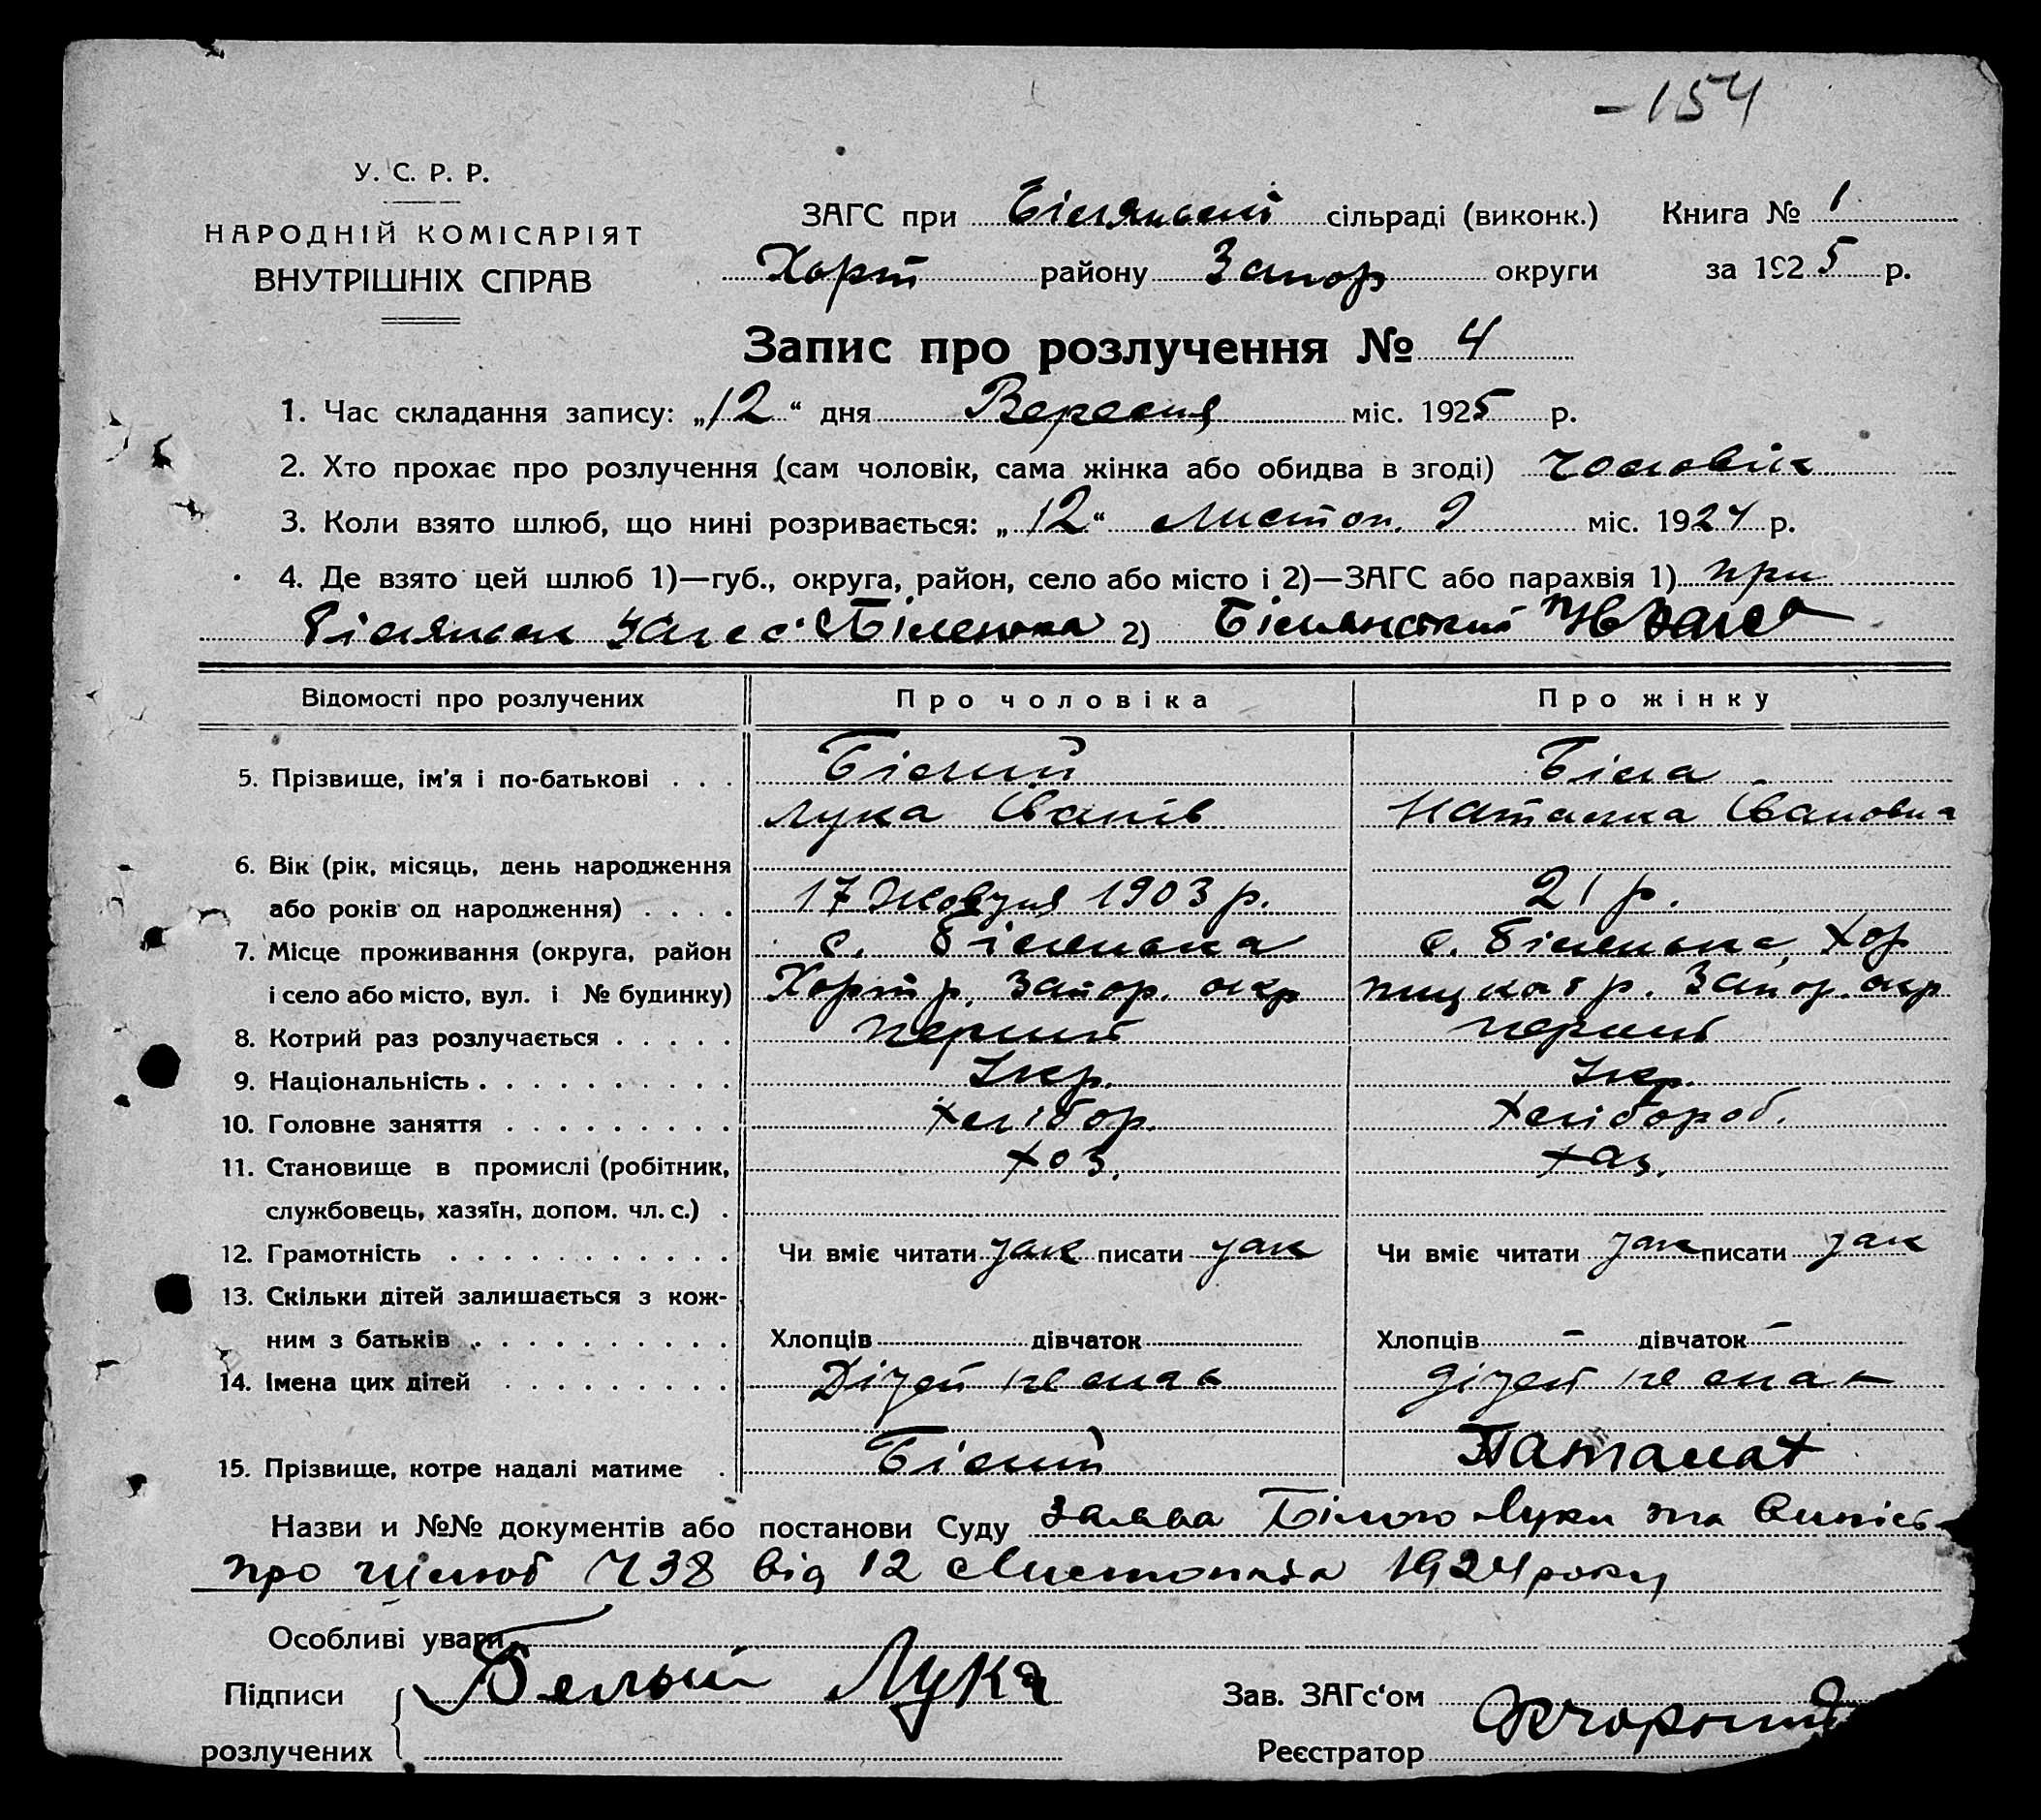 -154
У. С. Р. Р.
НАРОДНІЙ КОМІСАРІЯТ
ВНУТРІШНІХ СПРАВ
ЗАГС при Білянській сільраді (виконк.) Книга № 1
Хорт району Запор округи за 1925 р.
Запис про розлучення № 4
1. Час складання запису: „12“ дня Вересня міс. 1925 р.
2. Хто прохає про розлучення (сам чоловік, сама жінка або обидва в згоді) чоловік
3. Коли взято шлюб, що нині розривається: „12“ Листоп. міс. 1924 р.
4. Де взято цей шлюб 1)—губ., округа, район, село або місто і 2)—ЗАГС або парахвія 1) при
Загсе с. Біленька 2) Білянський
Відомості про розлучених Про чоловіка Про жінку
5. Прізвище, ім'я і по-батькові . . . Білий Біла
Лука Іванів Наталка Івановна
6. Вік (рік, місяць, день народження
або років од народження) . . . . 17 Жовтня 1903 р. 21 р.
7. Місце проживання (округа, район с. Біленька с. Біленька Хор
і село або місто, вул. і № будинку) Хорт р. Запор. окр тицког р. Запор. окр
8. Котрий раз розлучається . . . . . перший перший
9. Національність . . . . . . . . . . Укр. Укр.
10. Головне заняття . . . . . . . . . хлібор. хлібороб.
11. Становище в промислі (робітник, хоз. хаз.
службовець, хазяїн, допом. чл. с.) .
12. Грамотність . . . . . . . . . . . Чи вміє читати так писати так Чи вміє читати так писати так
13. Скільки дітей залишається з кож-
ним з батьків . . . . . . . . . . Хлопців дівчаток Хлопців – дівчаток –
14. Імена цих дітей . . . . . . . . . Дітей не має дітей не має
15. Прізвище, котре надалі матиме . Білий Паталах
Назви и №№ документів або постанови Суду Заява Білого Луки та Випись
про шлюб Ч 38 від 12 Листопада 1924 року
Особливі уваги
Підписи Белый Лука Зав. ЗАГс‘ом
розлучених Реєстратор